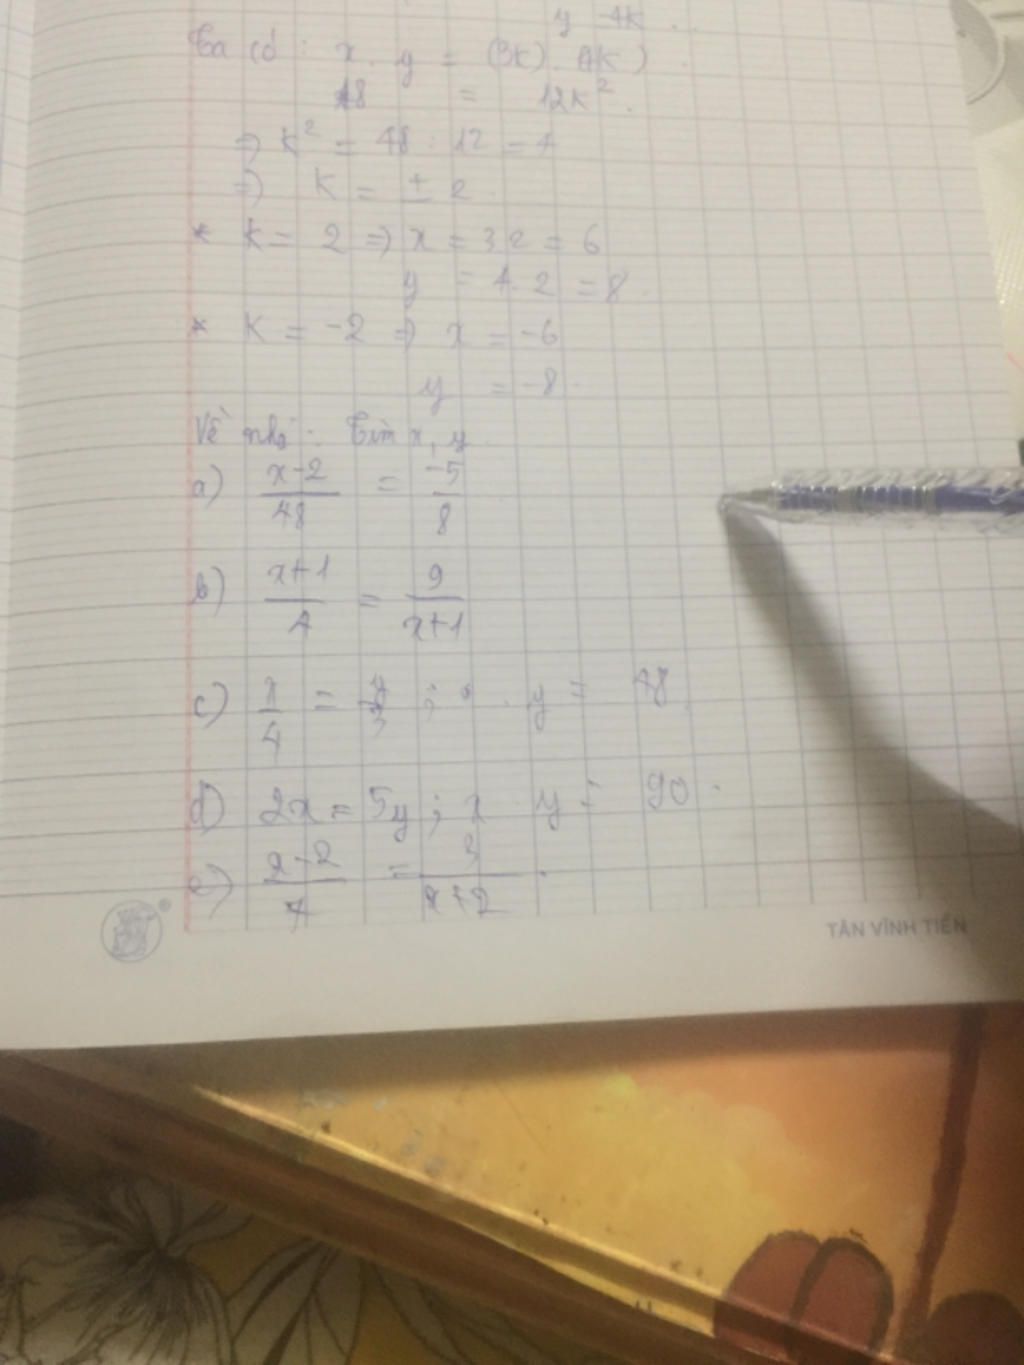 y = 4k
Ta có: x . y = (3k) . (4k)
48 = 12k².
=> k² = 48 : 12 = 4
=> k = ± 2
* k = 2 => x = 3.2 = 6
y = 4.2 = 8.
* k = -2 => x = -6
y = -8.
Về nhà: Tìm x, y.
a) (x-2)/48 = (-5)/8
b) (x+1)/4 = 9/(x+1)
c) x/4 = y/3 ; x . y = 48
d) 2x = 5y ; x . y = 90.
e) (x-2)/4 = 3/(x+2).
TÂN VĨNH TIẾN